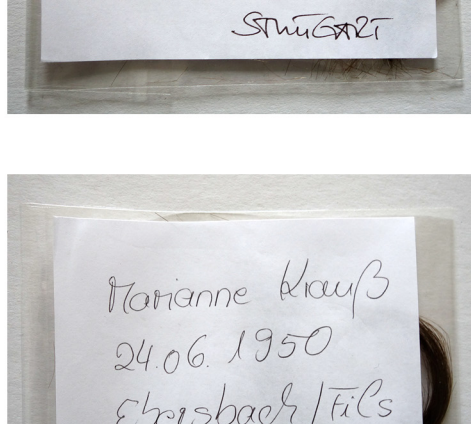 STUTTGART
Marianne Krauß
24.06.1950
Ebersbach/Fils